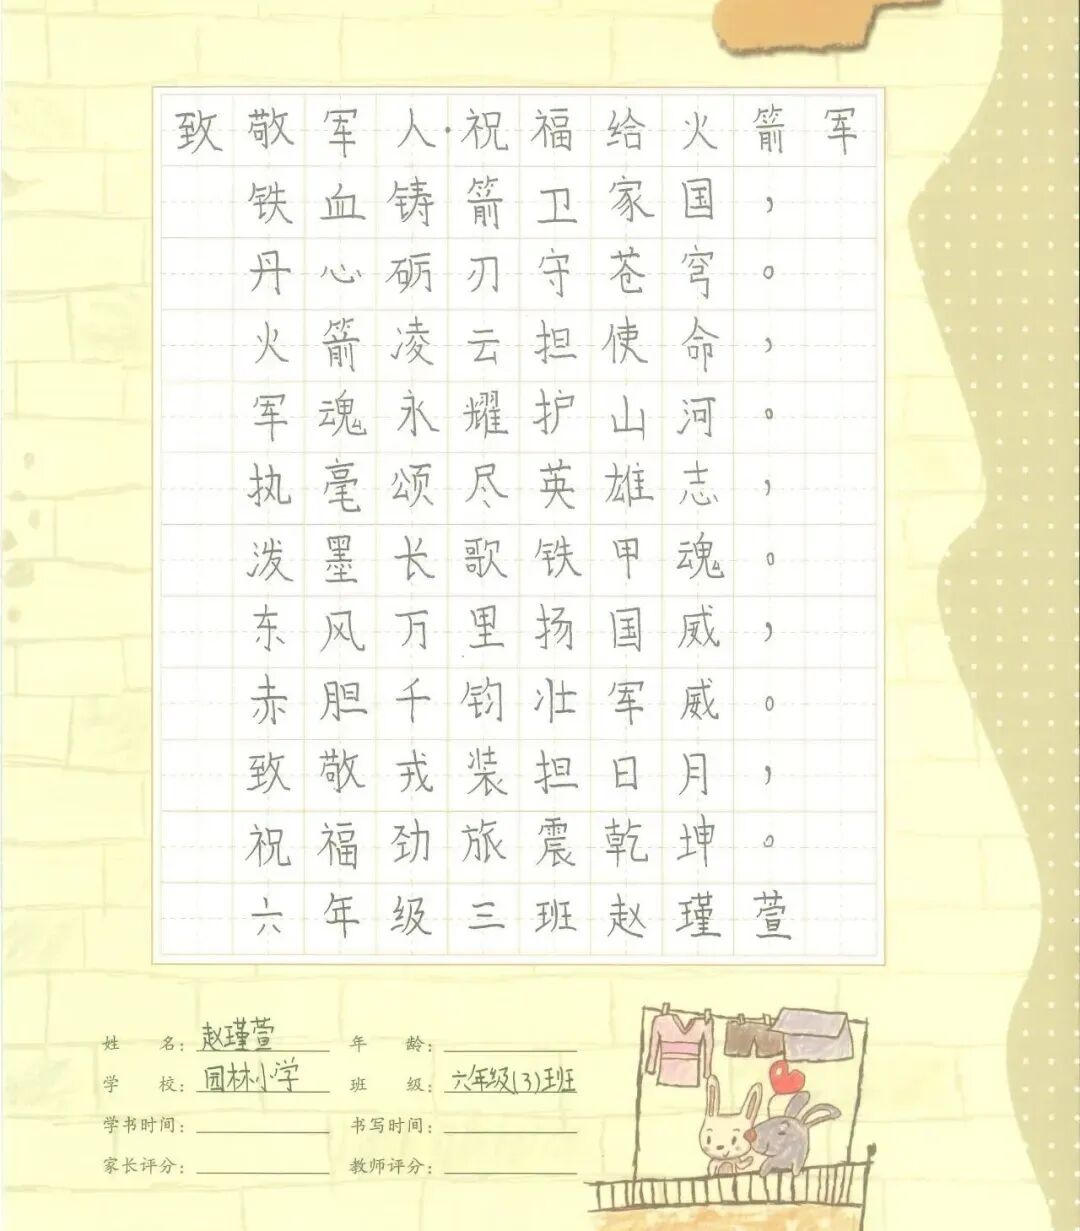 致敬军人·祝福给火箭军
铁血铸箭卫家国，
丹心砺刃守苍穹。
火箭凌云担使命，
军魂永耀护山河。
执毫颂尽英雄志，
泼墨长歌铁甲魂。
东风万里扬国威，
赤胆千钧壮军威。
致敬戎装担日月，
祝福劲旅震乾坤。
六年级三班赵瑾萱
姓名：赵瑾萱 年龄：
学校：园林小学 班级：六年级(3)班
学书时间： 书写时间：
家长评分： 教师评分：